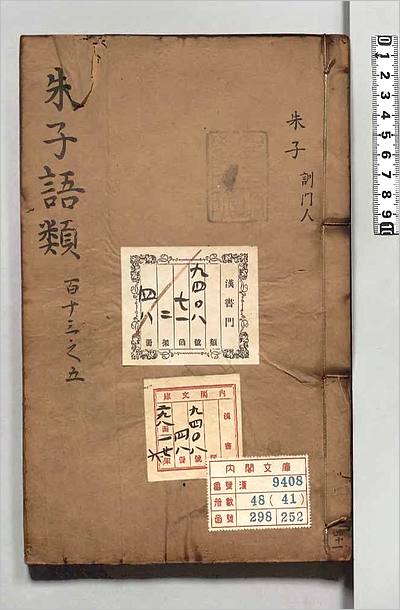 朱子語類
百十三之五
朱子
訓門人
漢書門
類
九四〇八
號
七一
函
二
架
四八
冊
內閣文庫
漢書
九四〇八
號
四八
冊
內閣文庫
番號 漢 9408
冊數 48 (41)
函號 298 252
四十一
0 1 2 3 4 5 6 7 8 9 10